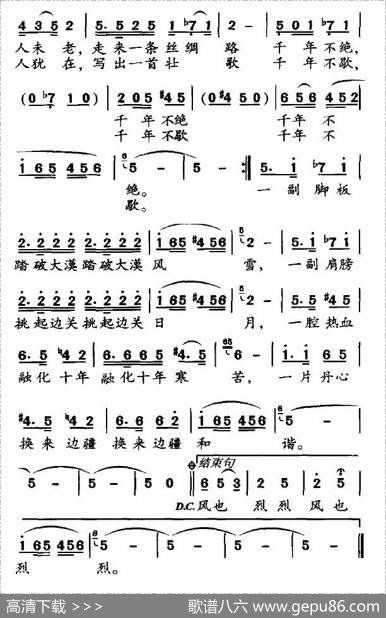 4 3 5 2 | 5. 5 2 5 1 ♭7 1 | 2 - | 5 0 1 ♭7 1 |
人未 老,走来一条丝绸 路 千 年不绝,
人犹 在,写出一首壮 歌 千 年不歌,
(0 ♭7 1 0) | 2 0 5 ♯4 5 | (0 ♯4 5 0) | 6 5 6 4 5 2 |
千 年不绝 千年 不
千 年不歇 千年 不
1 6 5 4 5 6 | 5 - | 5 - :‖ 5. 1 | ♭7 1 |
绝。 一副 脚板
歇。
2. 2 2 2 2. 2 2 2 | 1 6 5 ♯4 5 6 | 2 - | 5. 1 ♭7 1 |
踏破大漠踏破大漠 风 雪, 一副肩膀
2. 2 2 2 2. 2 2 2 | 1 6 5 ♯4 5 6 | 2 - | 5. 1 ♯4 5 |
挑起边关挑起边关 日 月, 一腔热血
6. 5 ♮4 2 | 6. 6 6 5 ♯4 5 | 6 - | 1. 1 6 5 |
融化十年 融化十年寒 苦, 一片丹心
♯4. 5 ♮4 2 | 6. 6 6 2 | 1 6 5 4 5 6 | 5 - |
换来边疆 换来边疆 和 谐。
结束句
5 - | 5 - | 5 0 ‖ 6 5 3 | 2 5 | 2 5 |
D.C.风也 烈烈 风也
1 6 5 4 5 6 | 5 - | 5 - | 5 - | 5 0 ‖
烈 烈。
高清下载 >>> 歌谱八六 www.gepu86.com